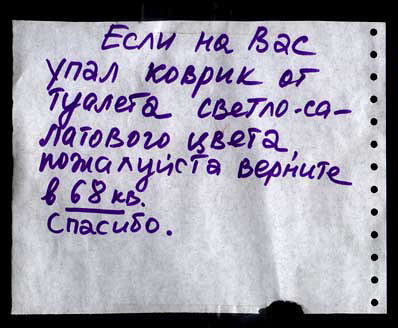 Если на Вас
упал коврик от
туалета светло-са-
латового цвета,
пожалуйста верните
в 68 кв.
Спасибо.